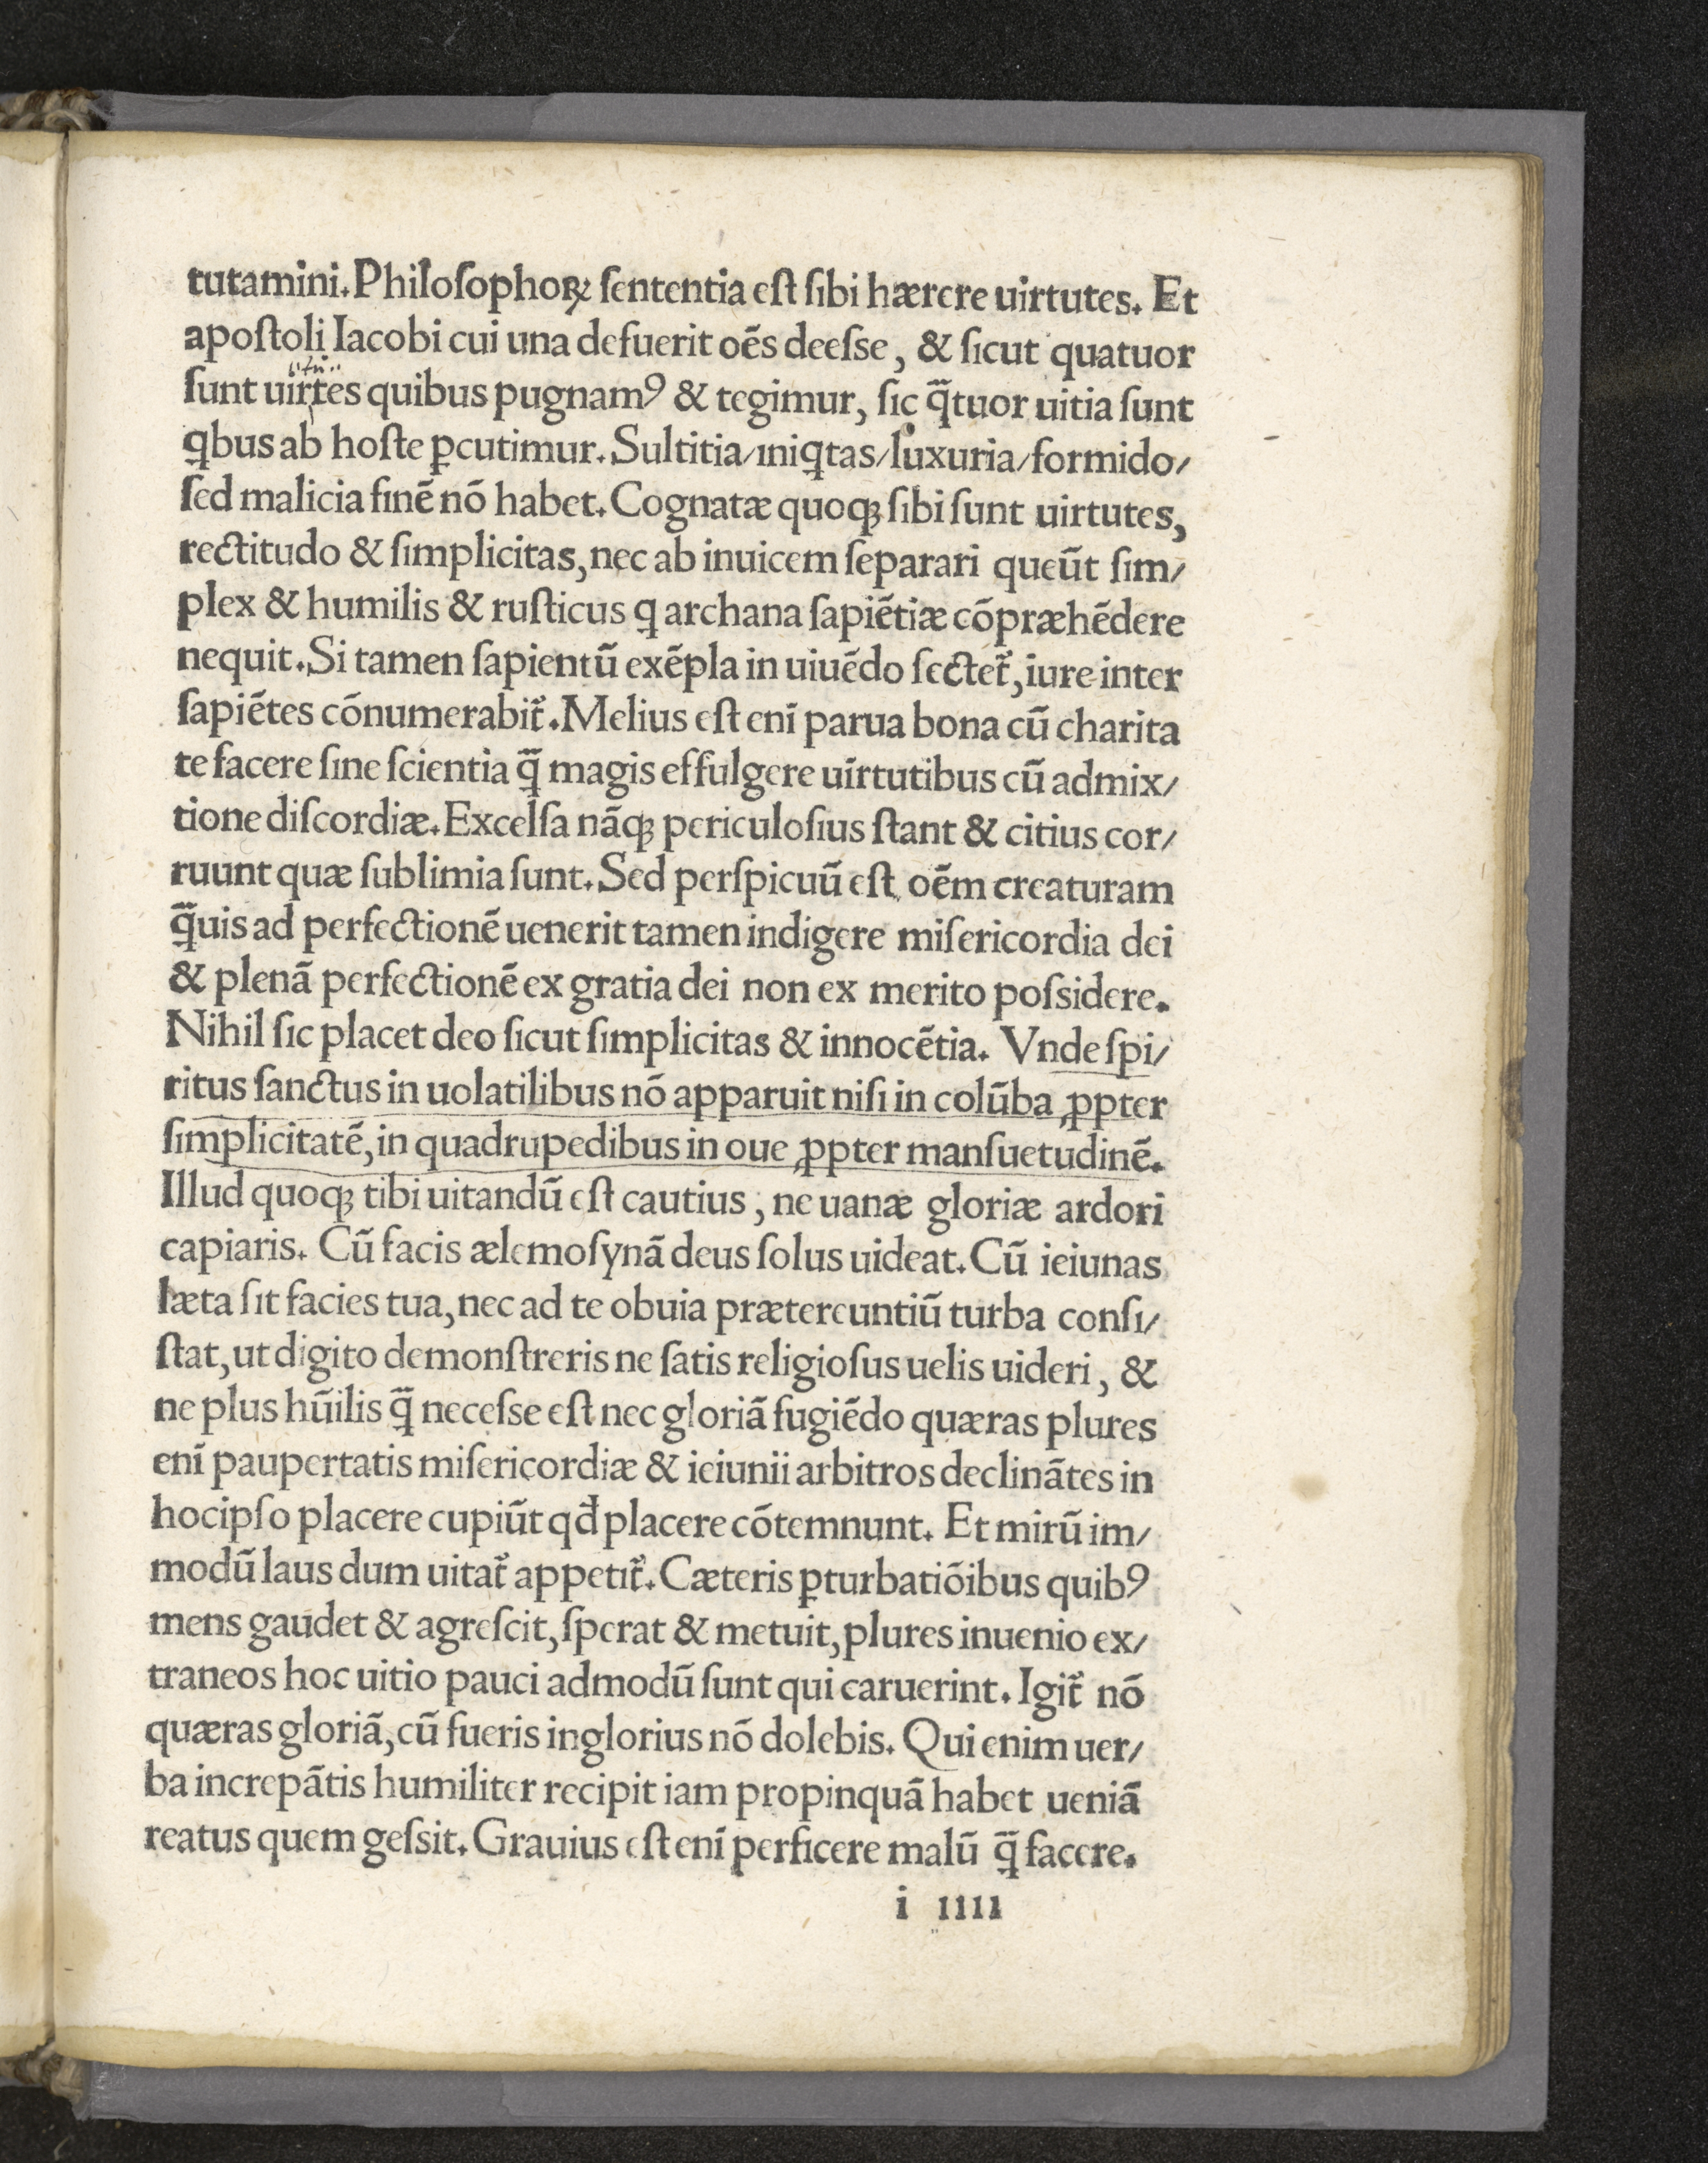 tutamini.Philoſophoꝝ ſententia eſt ſibi hærere uirtutes. Et
apoſtoli Iacobi cui una defuerit oēs deeſse, & ſicut quatuor
ſunt uirtes quibus pugnamꝰ & tegimur, ſic q̄tuor uitia ſunt
ꝗbus ab hoſte ꝑcutimur. Sultitia/iniꝗtas/luxuria/formido/
ſed malicia finē nō habet. Cognatæ quoqꝫ ſibi ſunt uirtutes,
rectitudo & ſimplicitas, nec ab inuicem ſeparari queūt ſim/
plex & humilis & ruſticus ꝗ archana ſapiētiæ cōpræhēdere
nequit. Si tamen ſapientū exēpla in uiuēdo ſectet᷑, iure inter
ſapiētes cōnumerabit᷑. Melius eſt enī parua bona cū charita
te facere ſine ſcientia q̄ magis effulgere uirtutibus cū admix/
tione diſcordiæ. Excelſa nāqꝫ periculoſius ſtant & citius cor/
ruunt quæ ſublimia ſunt. Sed perſpicuū eſt oēm creaturam
q̄uis ad perfectionē uenerit tamen indigere miſericordia dei
& plenā perfectionē ex gratia dei non ex merito poſsidere.
Nihil ſic placet deo ſicut ſimplicitas & innocētia. Vnde ſpi/
ritus ſanctus in uolatilibus nō apparuit niſi in colūba ꝓpter
ſimplicitatē, in quadrupedibus in oue ꝓpter manſuetudinē.
Illud quoqꝫ tibi uitandū eſt cautius, ne uanæ gloriæ ardori
capiaris. Cū facis ælemoſynā deus ſolus uideat. Cū ieiunas
læta ſit facies tua, nec ad te obuia prætereuntiū turba conſi/
ſtat, ut digito demonſtreris ne ſatis religioſus uelis uideri, &
ne plus hūilis q̄ neceſse eſt nec gloriā fugiēdo quæras plures
enī paupertatis miſericordiæ & ieiunii arbitros declinātes in
hocipſo placere cupiūt qđ placere cōtemnunt. Et mirū im/
modū laus dum uitat᷑ appetit᷑. Cæteris ꝑturbatiōibus quibꝰ
mens gaudet & agreſcit, ſperat & metuit, plures inuenio ex/
traneos hoc uitio pauci admodū ſunt qui caruerint. Igit᷑ nō
quæras gloriā, cū fueris inglorius nō dolebis. Qui enim uer/
ba increpātis humiliter recipit iam propinquā habet ueniā
reatus quem geſsit. Grauius eſt enī perficere malū q̄ facere.
i iiii